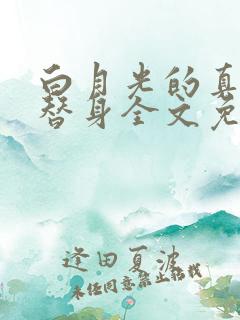 白月光的真
替身全文免
逢田夏波
未经同意禁止转载